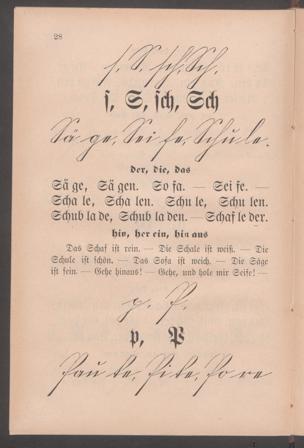 28
s. S. sch. Sch.
ſ, S, ſch, Sch
Sä ge, Sei fe, Schu le.
der, die, das
Sä ge, Sä gen. So fa. — Sei fe. —
Scha le, Scha len. Schu le, Schu len.
Schub la de, Schub la den. — Schaf le der.
hin, her ein, hin aus
Das Schaf iſt rein. — Die Schale iſt weiß. — Die
Schule iſt ſchön. — Das Sofa iſt weich. — Die Säge
iſt fein. — Gehe hinaus! — Gehe, und hole mir Seife! —
p. P.
p, P